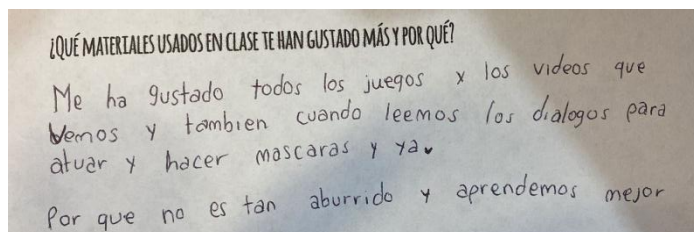 ¿QUÉ MATERIALES USADOS EN CLASE TE HAN GUSTADO MÁS Y POR QUÉ?
Me ha gustado todos los juegos y los videos que
vemos y tambien cuando leemos los dialogos para
atuar y hacer mascaras y ya.
Por que no es tan aburrido y aprendemos mejor